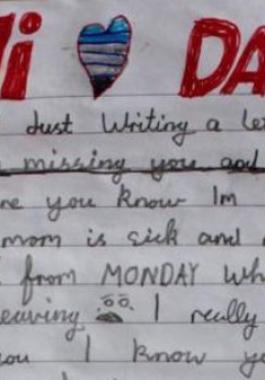 Hi DA
Just Writing a Le
missing you and
you know Im
mom is sick and
from MONDAY Wh
eaving I really
ou I know yo